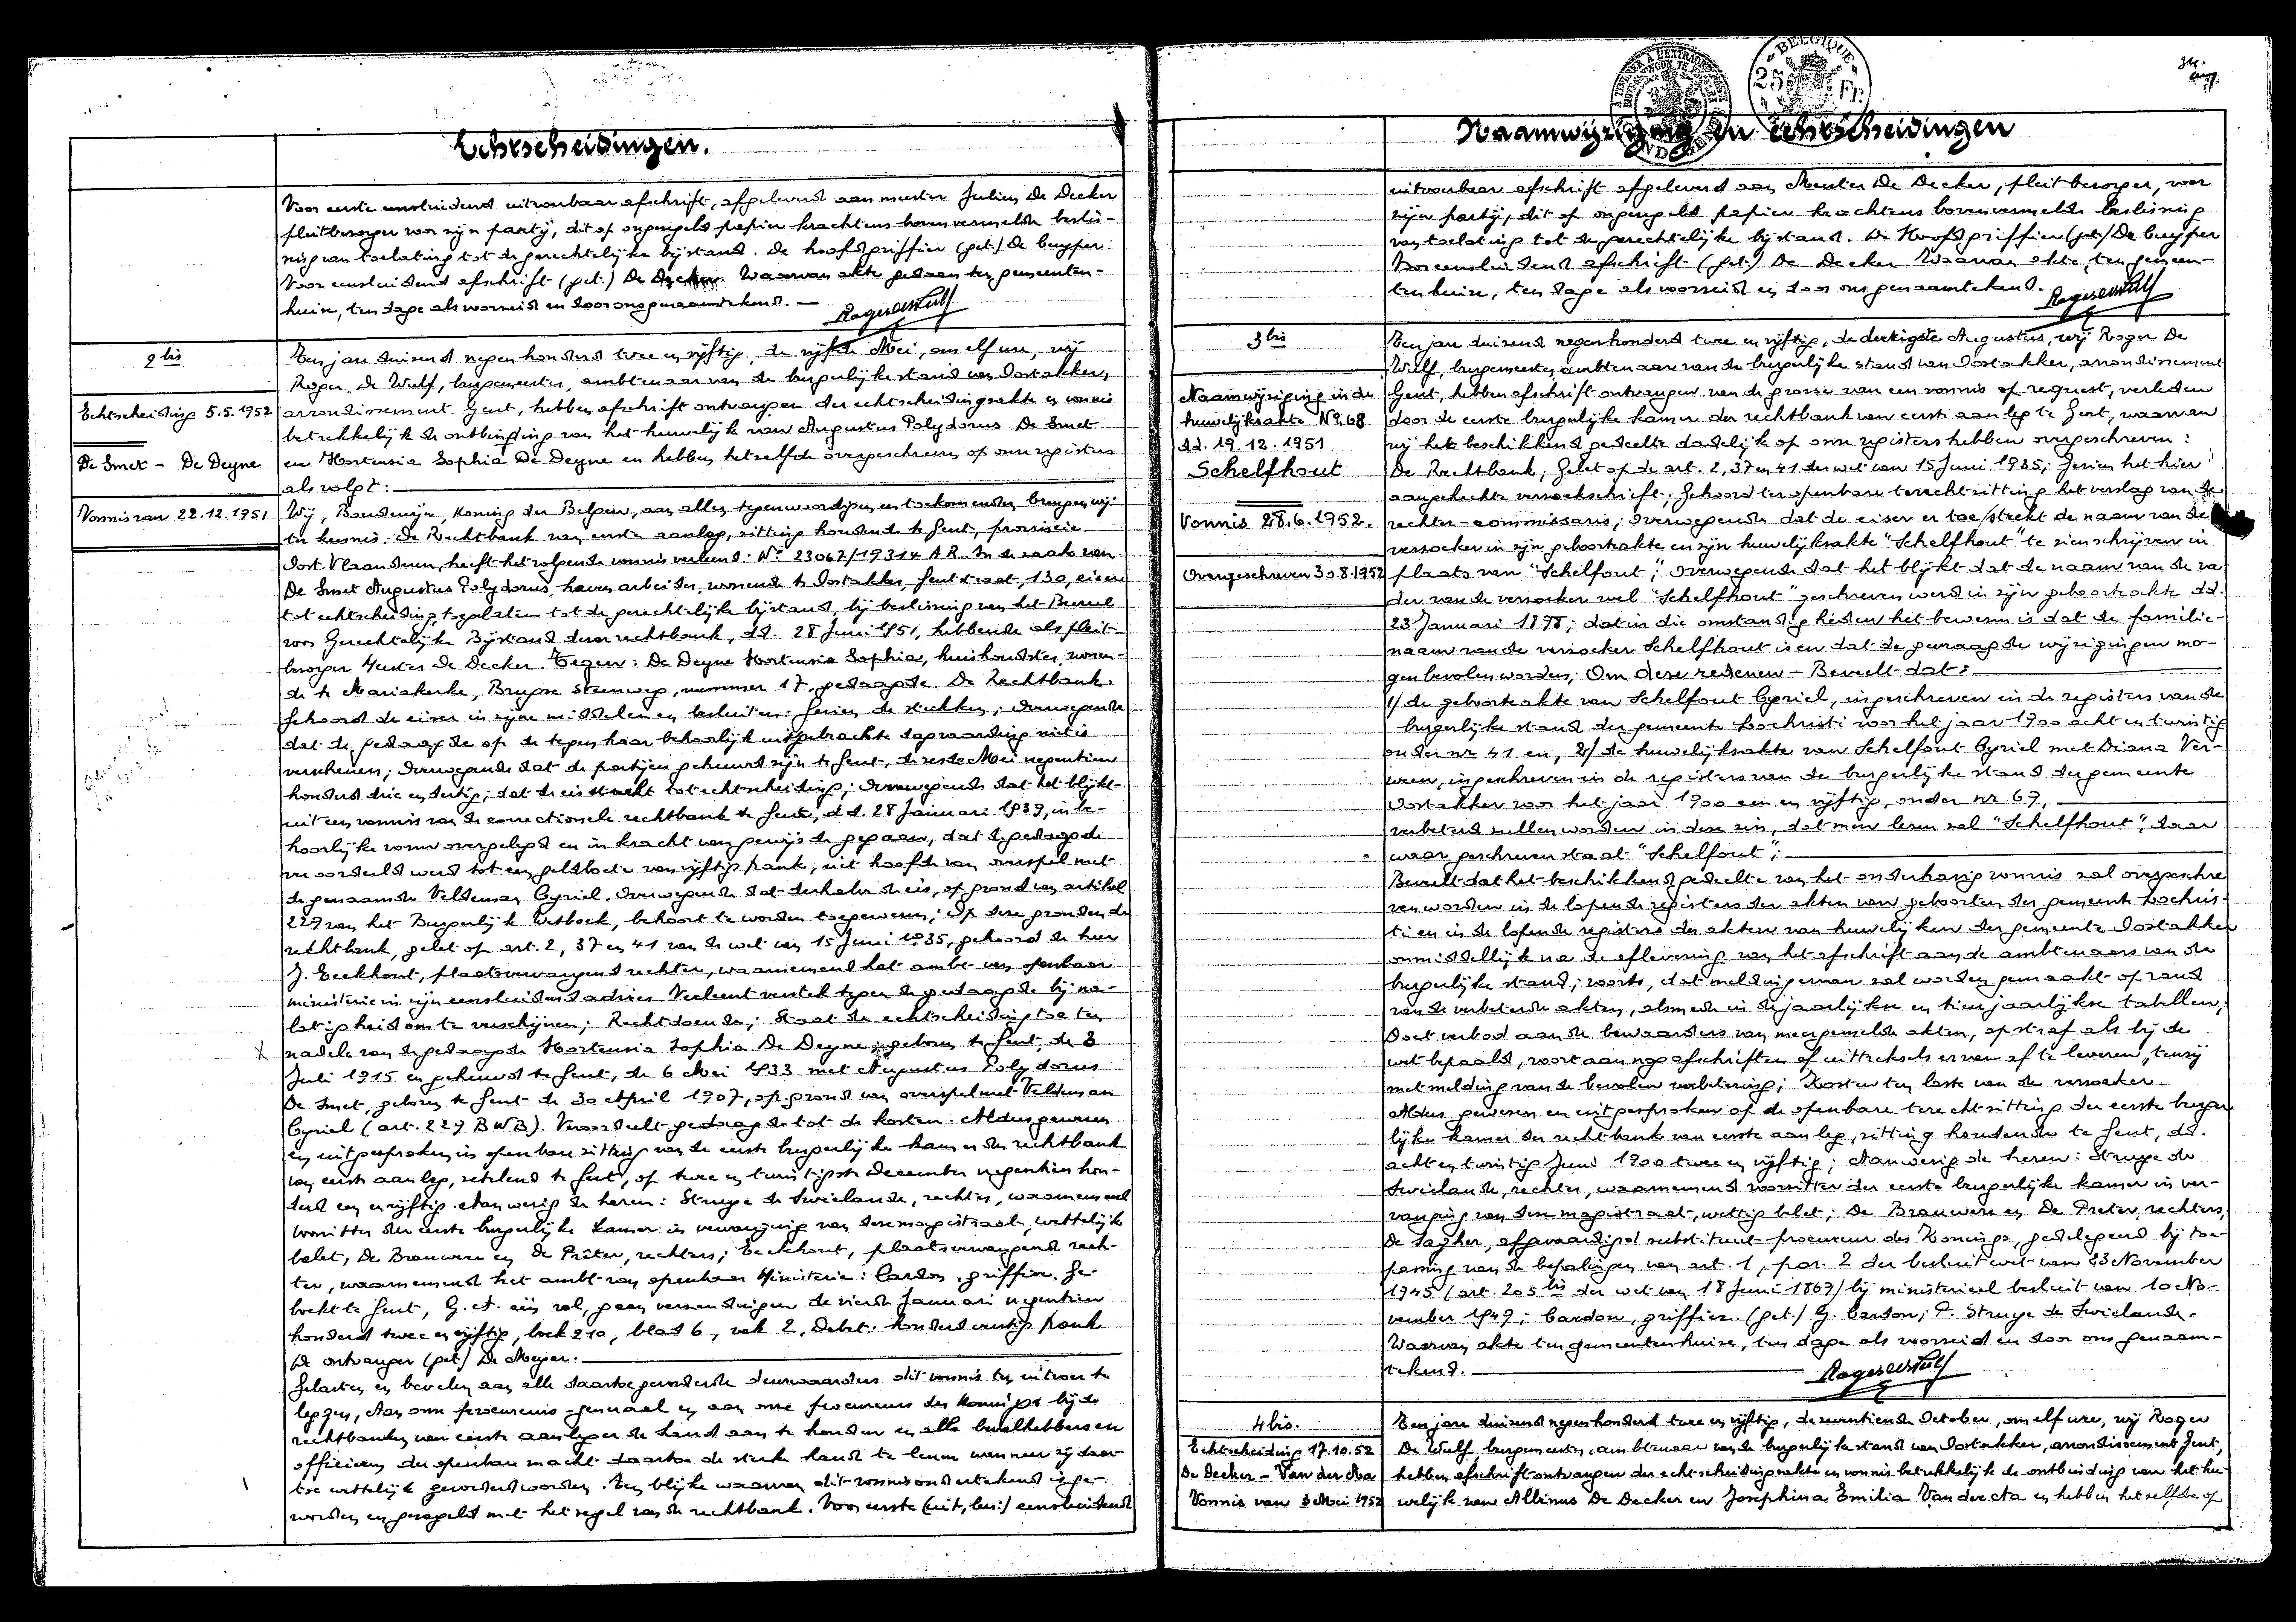 Echtscheidingen.
Voor eerste eensluidend uitvoerbaar afschrift, afgeleverd aan meester Julien De Decker
pleitbezorger voor zijn partij, dit op ongezegeld papier krachtens bovenvermelde beslis-
sing van toelating tot de gerechtelijke bijstand. De hoofdgriffier (get.) De Cuyper.
Voor eensluidend afschrift (get.) De Decker. Waarvan akte gedaan ten gemeenten-
huize, ten dage als voorzeid en door ons genaamtekend. —
2 bis
Echtscheiding 5.5.1952
De Smet - De Deyne
Vonnis van 22.12.1951
Ten jare duizend negen honderd twee en vijftig, de vijfde Mei, om elf ure, wij
Roger De Wulf, burgemeester, ambtenaar van de burgerlijke stand van Oostakker,
arrondissement Gent, hebben afschrift ontvangen der echtscheidingsakte en vonnis
betrekkelijk de ontbinding van het huwelijk van Augustus Polydorus De Smet
en Hortensia Sophia De Deyne en hebben hetzelfde overgeschreven op onze registers
als volgt:
Wij, Boudewijn, Koning der Belgen, aan allen tegenwoordigen en toekomenden brengen wij
ter kennis: De Rechtbank van eerste aanleg, zitting houdende te Gent, provincie
Oost-Vlaanderen, heeft het volgende vonnis verleend: N° 23067/19314 A.R. In de zaak van
De Smet Augustus Polydorus, havenarbeider, wonende te Oostakker, Gentstraat, 130, eiser
tot echtscheiding, toegelaten tot de gerechtelijke bijstand, bij beslissing van het Bureel
voor Gerechtelijke Bijstand dezer rechtbank, d.d. 28 Juni 1951, hebbende als pleit-
bezorger Meester De Decker. Tegen: De Deyne Hortensia Sophia, huishoudster, wonen-
de te Mariakerke, Brugse Steenweg, nummer 17, gedaagde. De Rechtbank.
Gehoord de eiser in zijne middelen en besluiten: Gezien de stukken; Overwegende
dat de gedaagde op de tegen haar behoorlijk uitgebrachte dagvaarding niet is
verschenen; Overwegende dat de partijen gehuwd zijn te Gent, de zesde Mei negentien
honderd drie en dertig; dat de eis strekt tot echtscheiding; Overwegende dat het blijkt
uit een vonnis van de correctionele rechtbank te Gent, d.d. 28 Januari 1939, in be-
hoorlijke vorm overgelegd en in kracht van gewijsde gegaan, dat de gedaagde
veroordeeld werd tot een geldboete van vijftig frank, uit hoofde van overspel met
de genaamde Veldeman Cyriel. Overwegende dat derhalve de eis, op grond van artikel
229 van het Burgerlijk Wetboek, behoort te worden toegewezen; Op deze gronden de
rechtbank, gelet op art. 2, 37 en 41 van de wet van 15 Juni 1935, gehoord de heer
J. Eeckhout, plaatsvervangend rechter, waarnemend het ambt van openbaar
ministerie in zijn eensluidend advies. Verleent verstek tegen de gedaagde bij na-
latigheid om te verschijnen; Rechtdoende; Staat de echtscheiding toe ten
nadele van de gedaagde Hortensia Sophia De Deyne, geboren te Gent, de 8
Juli 1915 en gehuwd te Gent, de 6 Mei 1933 met Augustus Polydorus
De Smet, geboren te Gent de 30 April 1907, op grond van overspel met Veldeman
Cyriel (art. 229 BWB). Veroordeelt gedaagde tot de kosten. Aldus gewezen
en uitgesproken in openbare zitting van de eerste burgerlijke kamer der rechtbank
van eerste aanleg, zetelend te Gent, op twee en twintigste December negentien hon-
derd een en vijftig. Aanwezig de heren: Struye de Swielande, rechter, waarnemend
voorzitter der eerste burgerlijke kamer in vervanging van deze magistraat, wettelijk
belet, De Brauwere en De Prêter, rechters; Eeckhout, plaatsvervangend rech-
ter, waarnemend het ambt van openbaar Ministerie: Cardon, griffier. Ge-
boekt te Gent, G.A. één rol, geen verzendingen de vierde Januari negentien
honderd twee en vijftig, boek 210, blad 6, vak 2. Debet: honderd veertig frank
De ontvanger (get.) De Meyer.
Gelasten en bevelen aan alle daartoe gevorderde deurwaarders dit vonnis ten uitvoer te
leggen, Aan onze procureurs-generaal en aan onze procureurs des Konings bij de
rechtbanken van eerste aanleg er de hand aan te houden en alle bevelhebbers en
officieren der openbare macht daartoe de sterke hand te lenen wanneer zij daar-
toe wettelijk gevorderd worden. Ten blijke waarvan dit vonnis ondertekend is ge-
worden en gezegeld met het zegel van de rechtbank. Voor eerste (uit, bes:) eensluidend
Naamwijziging en Echtscheidingen
BELGIQUE
25 Fr.
uitvoerbaar afschrift afgeleverd aan Meester De Decker, pleitbezorger, voor
zijn partij, dit op ongezegeld papier krachtens bovenvermelde beslissing
van toelating tot de gerechtelijke bijstand. De Hoofdgriffier (get.) De Cuyper
Voor eensluidend afschrift (get.) De Decker. Waarvan akte, ten gemeen-
tenhuize, ten dage als voorzeid en door ons genaamtekend.
3 bis
Naamwijziging in de
huwelijksakte N° 68
d.d. 19.12.1951
Schelfhout
Vonnis 28.6.1952.
Overgeschreven 30.8.1952
Ten jare duizend negenhonderd twee en vijftig, de dertigste Augustus, wij Roger De
Wulf, burgemeester, ambtenaar van de burgerlijke stand van Oostakker, arrondissement
Gent, hebben afschrift ontvangen van de grosse van een vonnis op request, verleden
door de eerste burgerlijke kamer der rechtbank van eerste aanleg te Gent, waarvan
wij het beschikkend gedeelte dadelijk op onze registers hebben overgeschreven:
De Rechtbank; Gelet op de art. 2, 37 en 41 der wet van 15 Juni 1935; Gezien het hier
aangehechte verzoekschrift; Gehoord ter openbare terechtzitting het verslag van de
rechter-commissaris; Overwegende dat de eiser er toe strekt de naam van de
verzoeker in zijn geboorteakte en zijn huwelijksakte "Schelfhout" te zien schrijven in
plaats van "Schelfout"; Overwegende dat het blijkt dat de naam van de va
der van de verzoeker wel "Schelfhout" geschreven werd in zijn geboorteakte d.d.
23 Januari 1898; dat in die omstandigheden het bewezen is dat de familie-
naam van de verzoeker Schelfhout is en dat de gevraagde wijzigingen mo-
gen bevolen worden; Om deze redenen - Beveelt dat:
1/ de geboorteakte van Schelfout Cyriel, ingeschreven in de registers van de
burgerlijke stand der gemeente Lochristi voor het jaar 1900 acht en twintig
onder nr 41 en, 2/ de huwelijksakte van Schelfout Cyriel met Diana Ver-
ween, ingeschreven in de registers van de burgerlijke stand der gemeente
Oostakker voor het jaar 1900 een en vijftig, onder nr 67,
verbeterd zullen worden in deze zin, dat men lezen zal "Schelfhout", daar
waar geschreven staat "Schelfout";
Beveelt dat het beschikkend gedeelte van het onderhavig vonnis zal overgeschre
ven worden in de lopende registers der akten van geboorten der gemeente Lochris-
ti en in de lopende registers der akten van huwelijken der gemeente Oostakker
onmiddellijk na de aflevering van het afschrift aan de ambtenaars van de
burgerlijke stand; voorts, dat melding ervan zal worden gemaakt op rand
van de verbeterde akten, alsmede in de jaarlijkse en tienjaarlijkse tabellen;
Doet verbod aan de bewaarders van meergemelde akten, op straf als bij de
wet bepaald, voortaan nog afschriften of uittreksels ervan af te leveren, tenzij
met melding van de bevolen verbetering; Kosten ten laste van de verzoeker.
Aldus gewezen en uitgesproken op de openbare terechtzitting der eerste burger
lijke kamer der rechtbank van eerste aanleg, zitting houdende te Gent, d.d.
acht en twintig Juni 1900 twee en vijftig; Aanwezig de heren: Struye de
Swielande, rechter, waarnemend voorzitter der eerste burgerlijke kamer in ver-
vanging van deze magistraat, wettig belet; De Brauwere en De Preter, rechters,
De Sagher, afgevaardigd substituut-procureur des Konings, gedelegeerd bij toe-
passing van de bepalingen van art. 1, par. 2 der besluitwet van 23 November
1945 (art. 205 bis der wet van 18 Juni 1869) bij ministerieel besluit van 10 No-
vember 1949; Cardon, griffier. (get.) G. Cardon; P. Struye de Swielande.
Waarvan akte ten gemeentenhuize, ten dage als voorzeid en door ons genaam-
tekend.
4 bis.
Echtscheiding 17.10.52
De Decker - Van der Aa
Vonnis van 3 Mei 1952
Ten jare duizend negenhonderd twee en vijftig, de zeventiende October, om elf ure, wij Roger
De Wulf, burgemeester, ambtenaar van de burgerlijke stand van Oostakker, arrondissement Gent,
hebben afschrift ontvangen der echtscheidingsakte en vonnis betrekkelijk de ontbinding van het hu-
welijk van Albinus De Decker en Josephina Emilia Van der Aa en hebben hetzelfde op